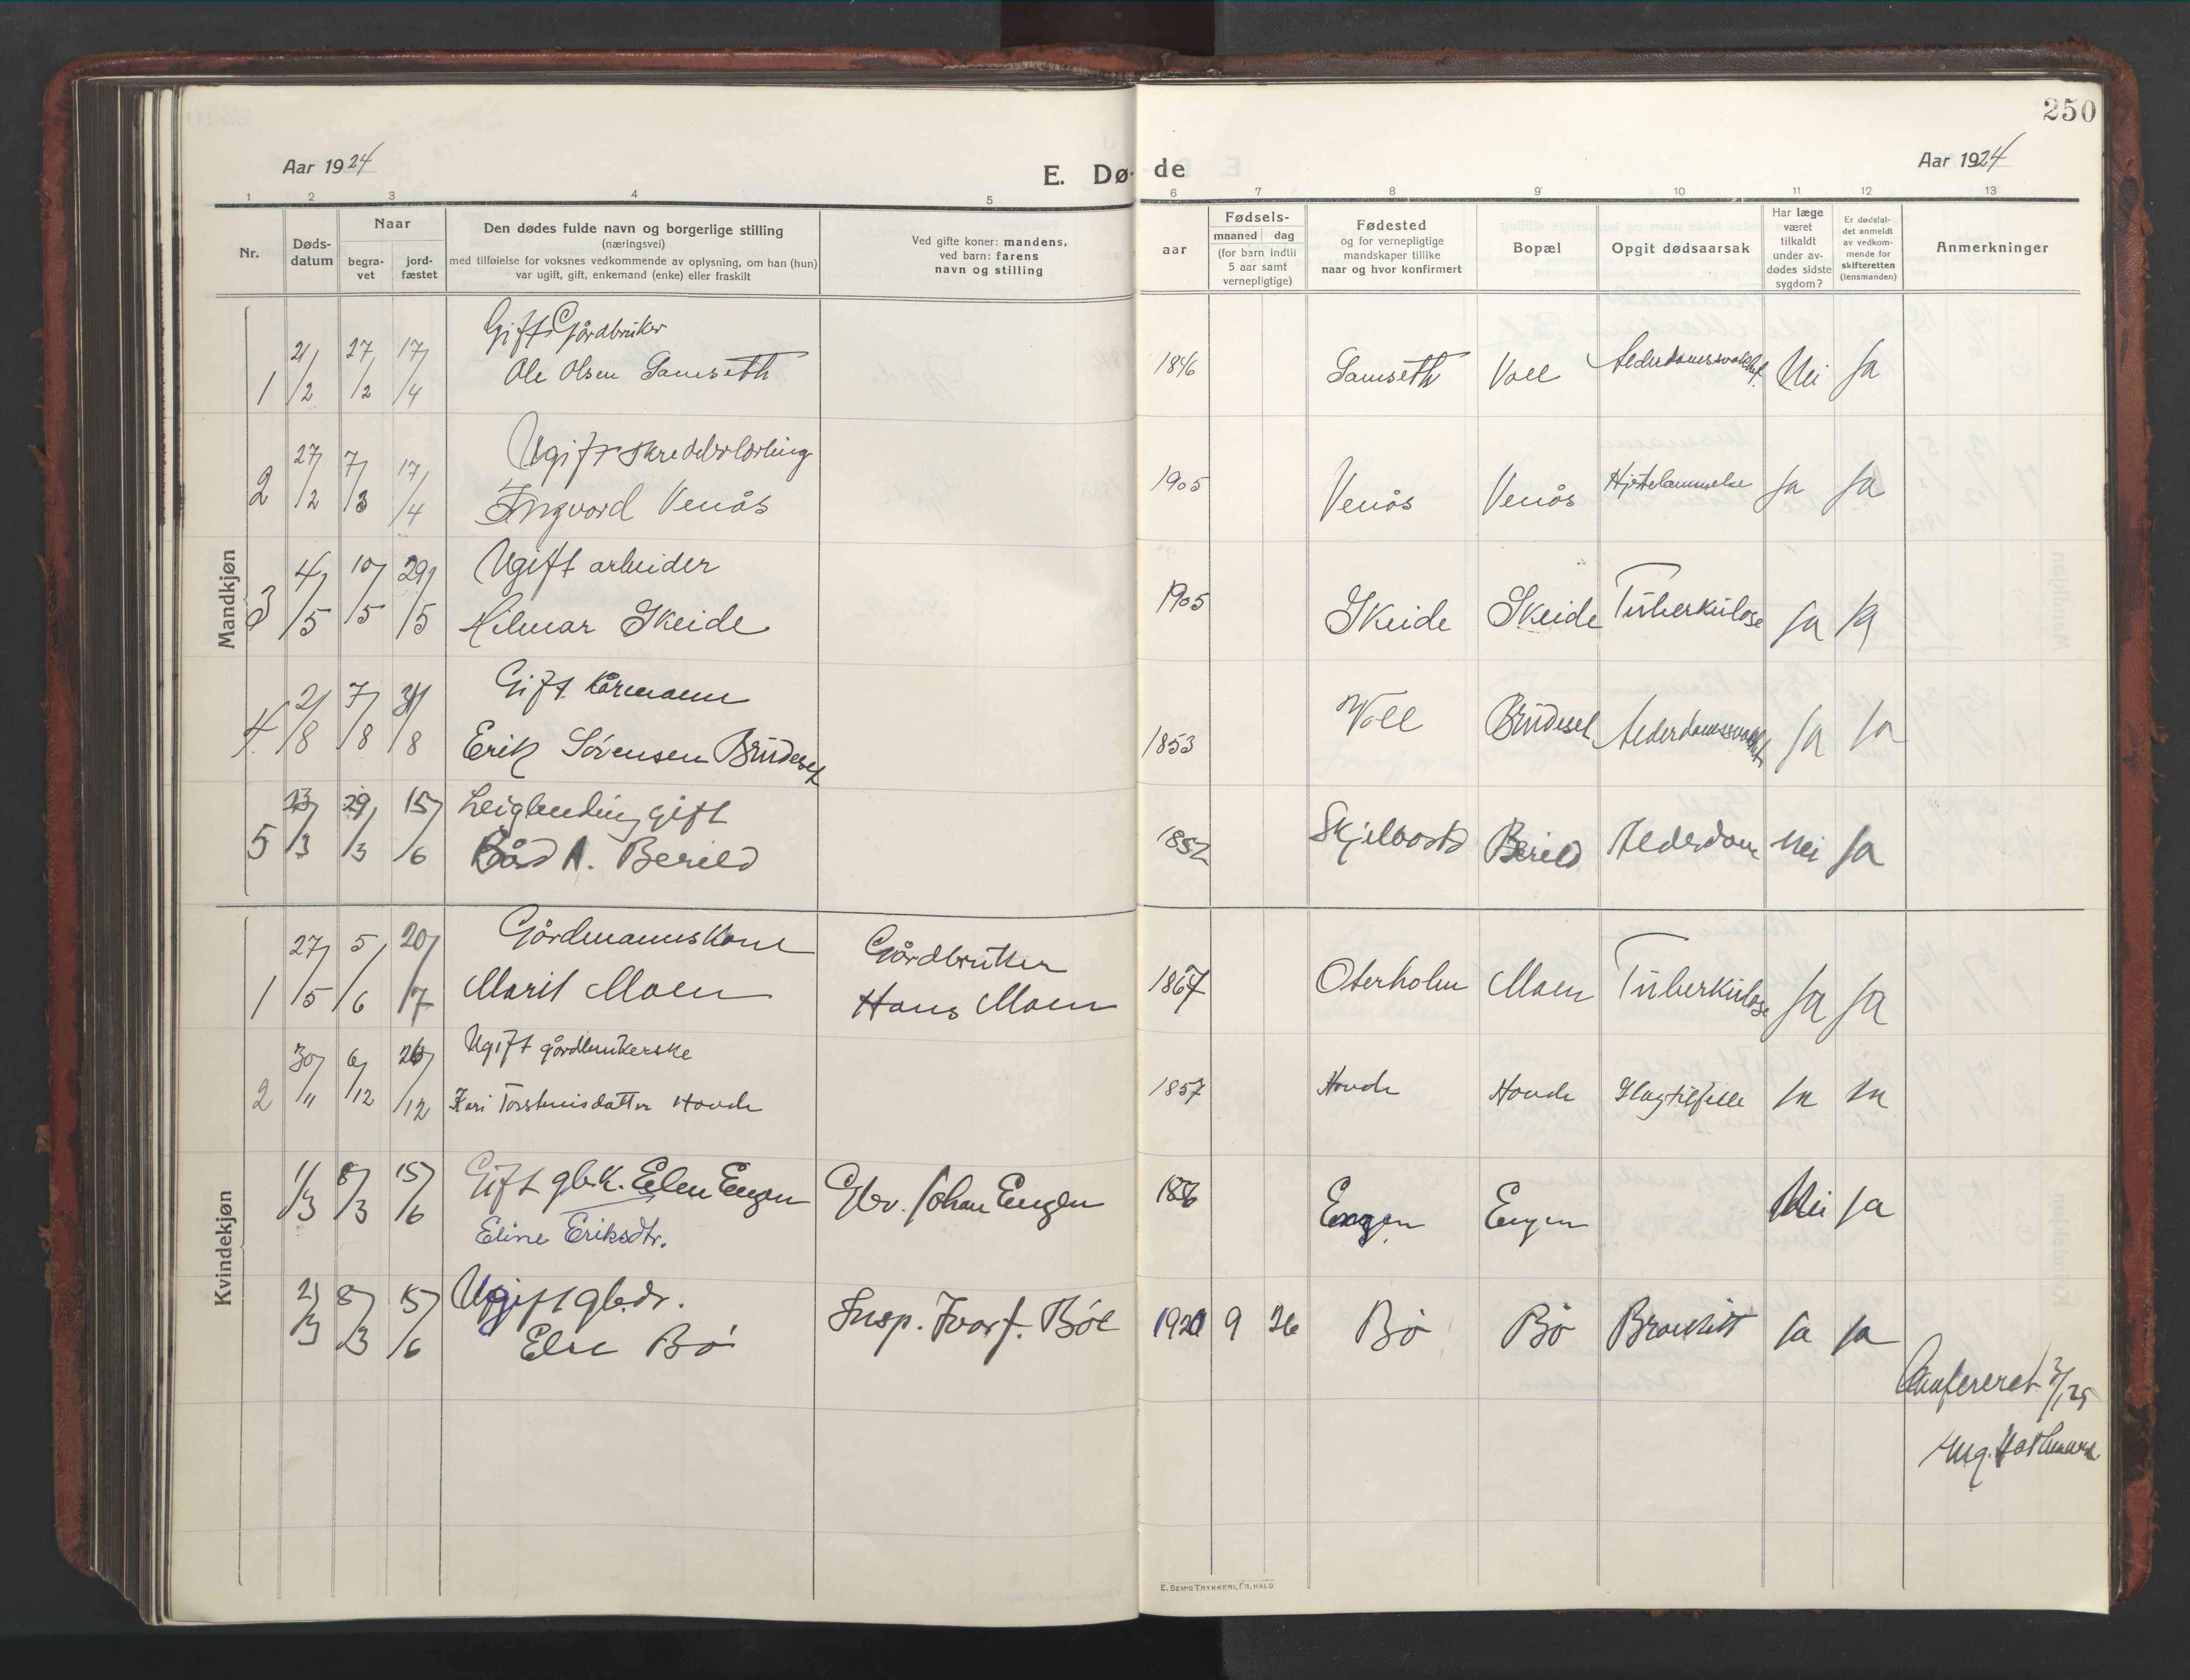 250
Aar 1924
E. Dø- de
Aar 1924
1 2 3 4 5 6 7 8 9 10 11 12 13
Nr.
Døds-
datum
Naar
begra-
vet
jord-
fæstet
Den dødes fulde navn og borgerlige stilling
(næringsvei)
med tilføielse for voksnes vedkommende av oplysning, om han (hun)
var ugift, gift, enkemand (enke) eller fraskilt
Ved gifte koner: mandens,
ved barn: farens
navn og stilling
aar
Fødsels-
maaned dag
(for barn indtil
5 aar samt
vernepligtige)
Fødested
og for vernepligtige
mandskaper tillike
naar og hvor konfirmert
Bopæl
Opgit dødsaarsak
Har læge
været
tilkaldt
under av-
dødes sidste
sygdom?
Er dødsfal-
det anmeldt
av vedkom-
mende for
skifteretten
(lensmanden)
Anmerkninger
Mandkjøn
Gift Gårdbruker
1 21/2 27/2 17/4 Ole Olsen Samseth 1846 Samseth Voll Alderdomssvakhet Nei Ja
Ugift skredderlærling
2 27/2 7/3 17/4 Ingvard Venås 1905 Venås Venås Hjertelammelse Ja Ja
Ugift arbeider
3 4/5 10/5 29/5 Hilmar Skeide 1905 Skeide Skeide Tuberkulose Ja Ja
Gift kårmann
4 2/8 7/8 31/8 Erik Sørensen Brudeset 1853 Voll Brudeset Alderdomssvakhet Ja Ja
Leiglending gift
5 23/3 29/3 15/6 Bård A. Berild 1852 Berild Alderdom Nei Ja
Kvindekjøn
Gårdmannskone Gårdbruker
1 27/5 5/6 20/7 Marit Moen Hans Moen 1867 Oterholm Moen Tuberkulose Ja Ja
Ugift gårdbrukerske
2 30/11 6/12 26/12 Kari Torsteinsdatter Hovde 1857 Hovde Hovde Slagtilfelle Ja Ja
1/3 8/3 15/6 Gift gbk. Elen Engen Gbr. Johan Engen Engen Engen Nei Ja
Eline Eriksdtr.
Ugift gb.dr.
2/3 8/3 15/6 Else Bø Insp. Ivar J. Bøe 1920 9 26 Bø Bø Bronkitt Ja Ja
Konfereret 3/1 25
E. SEM'S TRYKKERI, FR.HALD